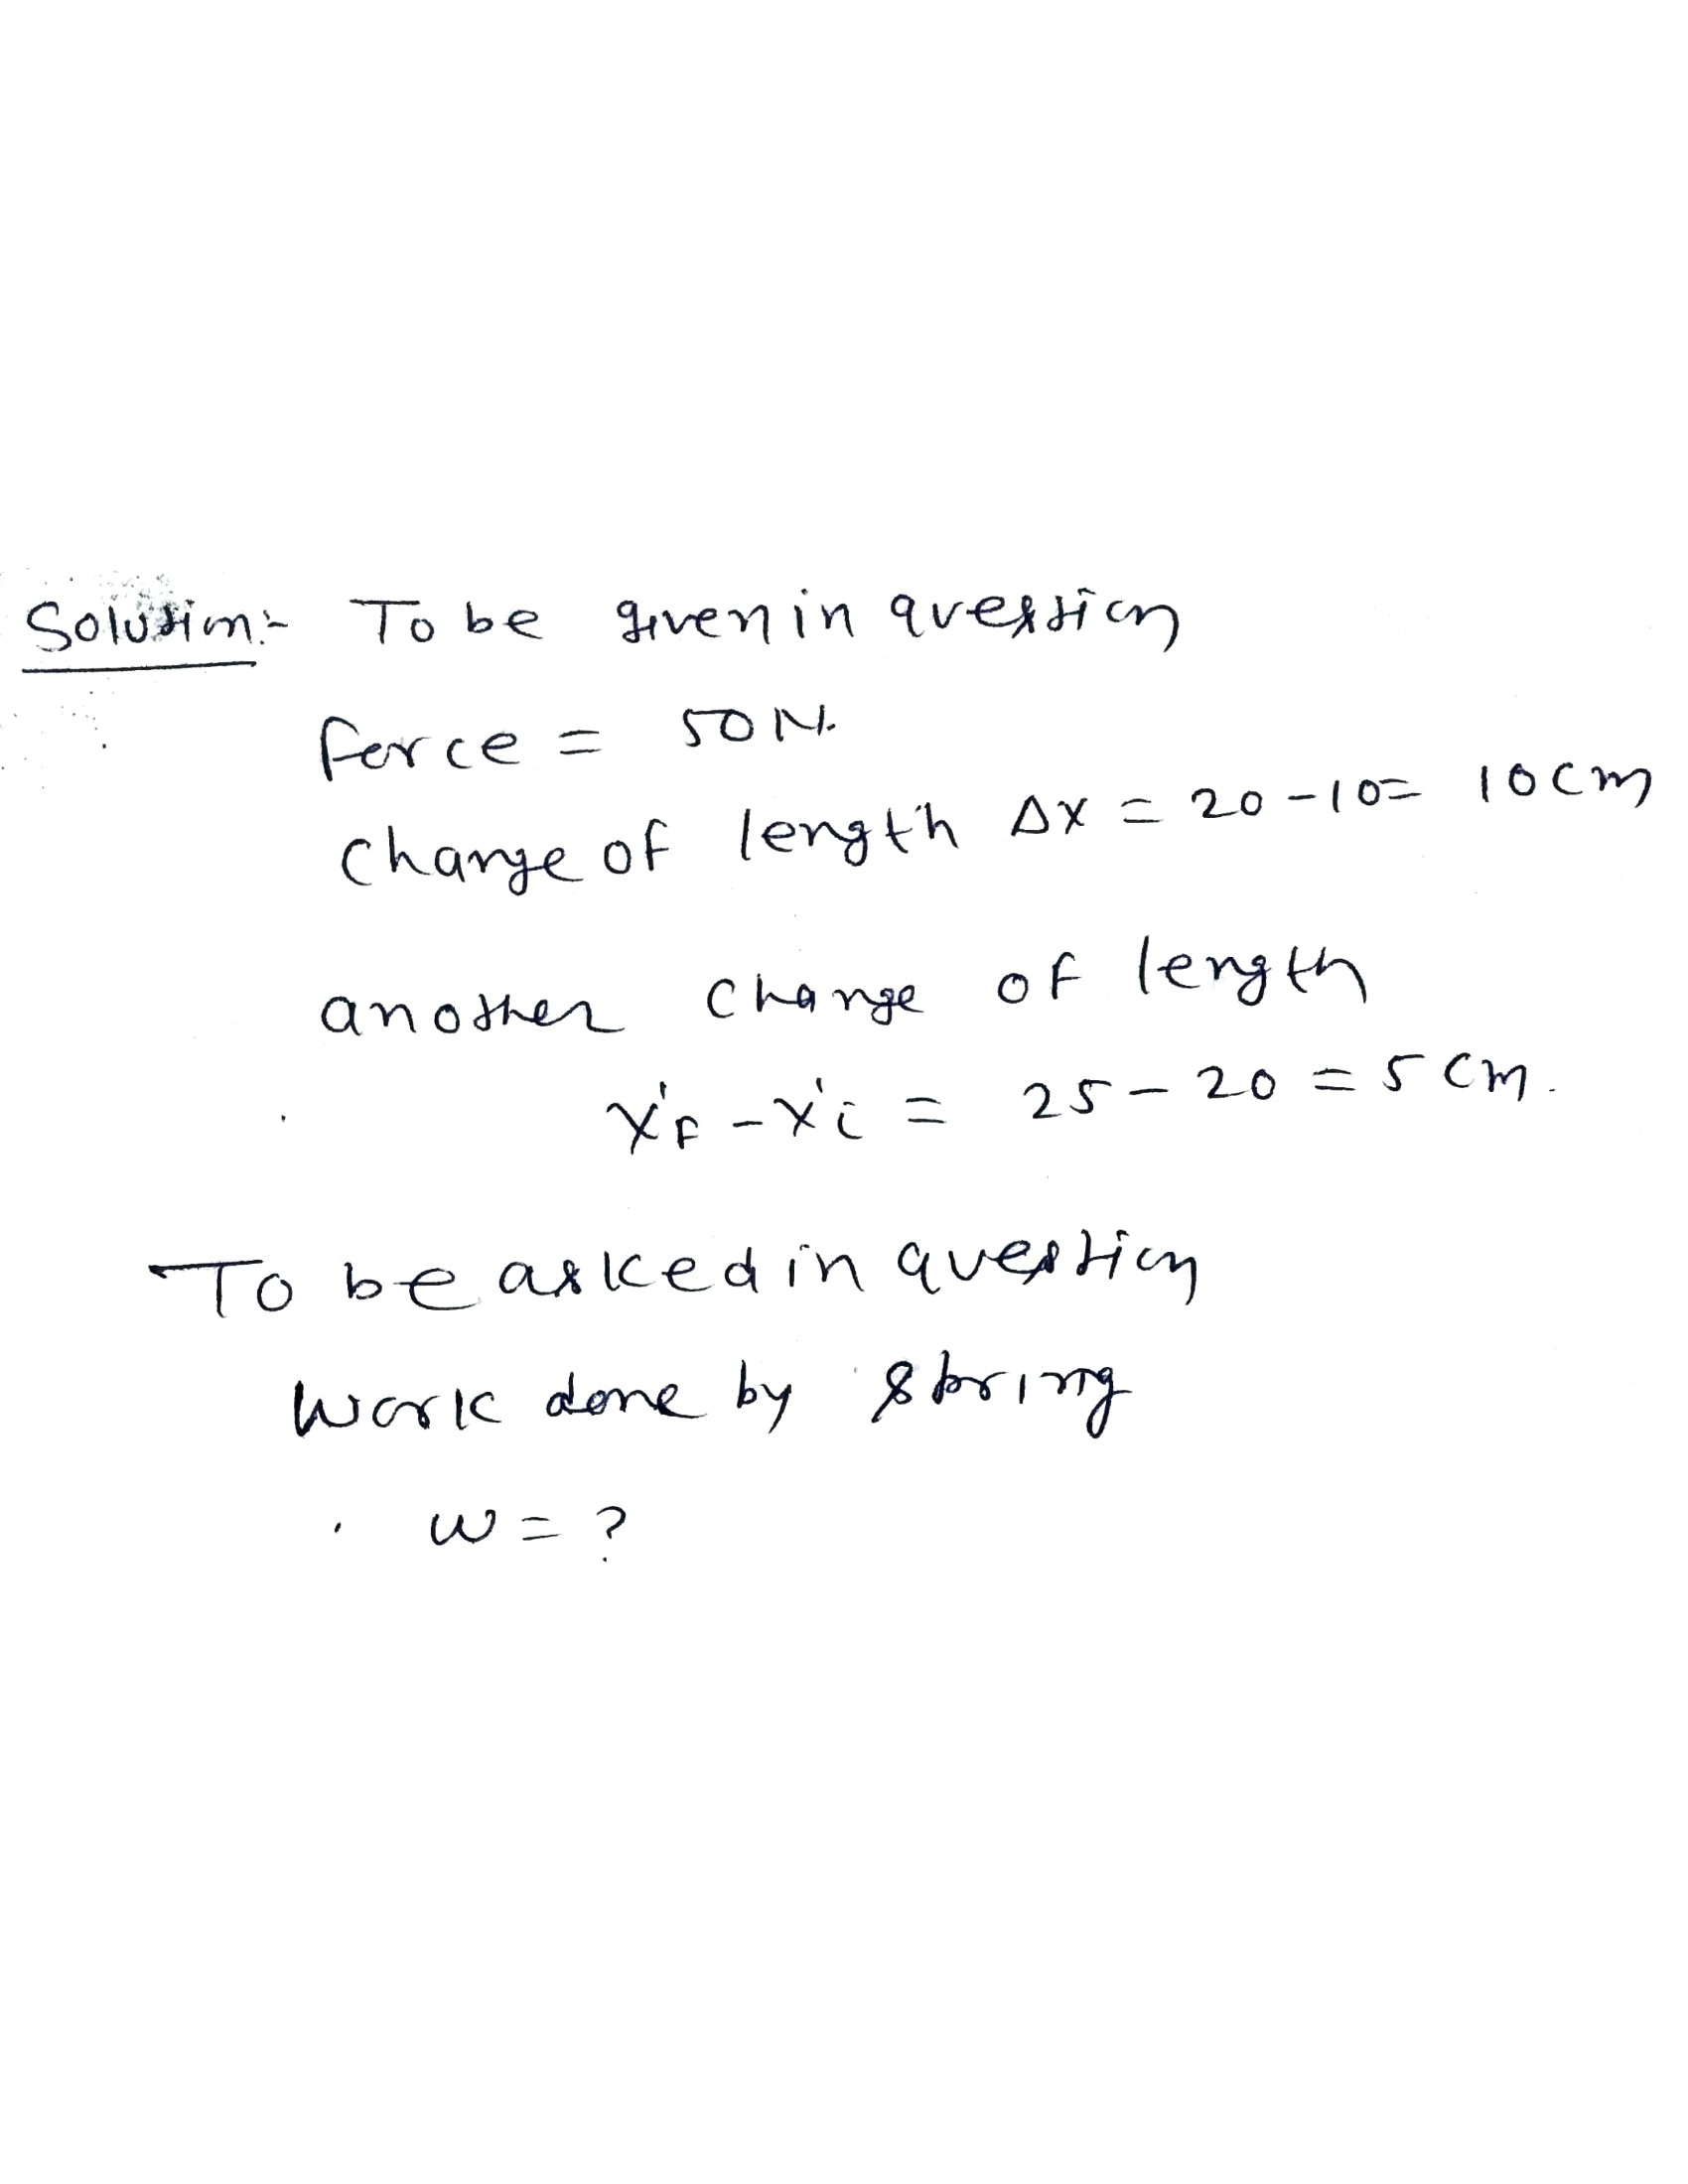 Solution:- To be given in question
force = 50N.
change of length Δx = 20-10= 10cm
another change of length
x'F - x'i = 25 - 20 = 5 cm.
To be asked in question
Work done by spring
w = ?